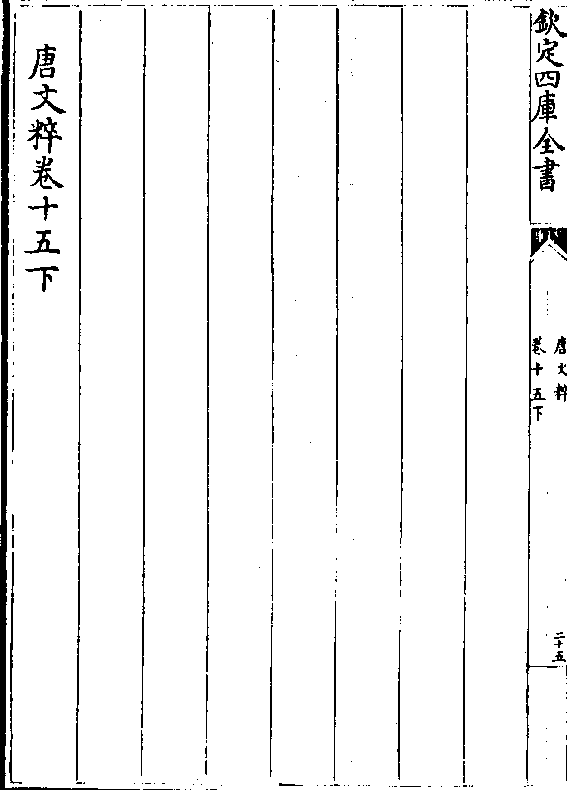 欽定四庫全書
唐文粹
卷十五下
二十五
唐文粹卷十五下